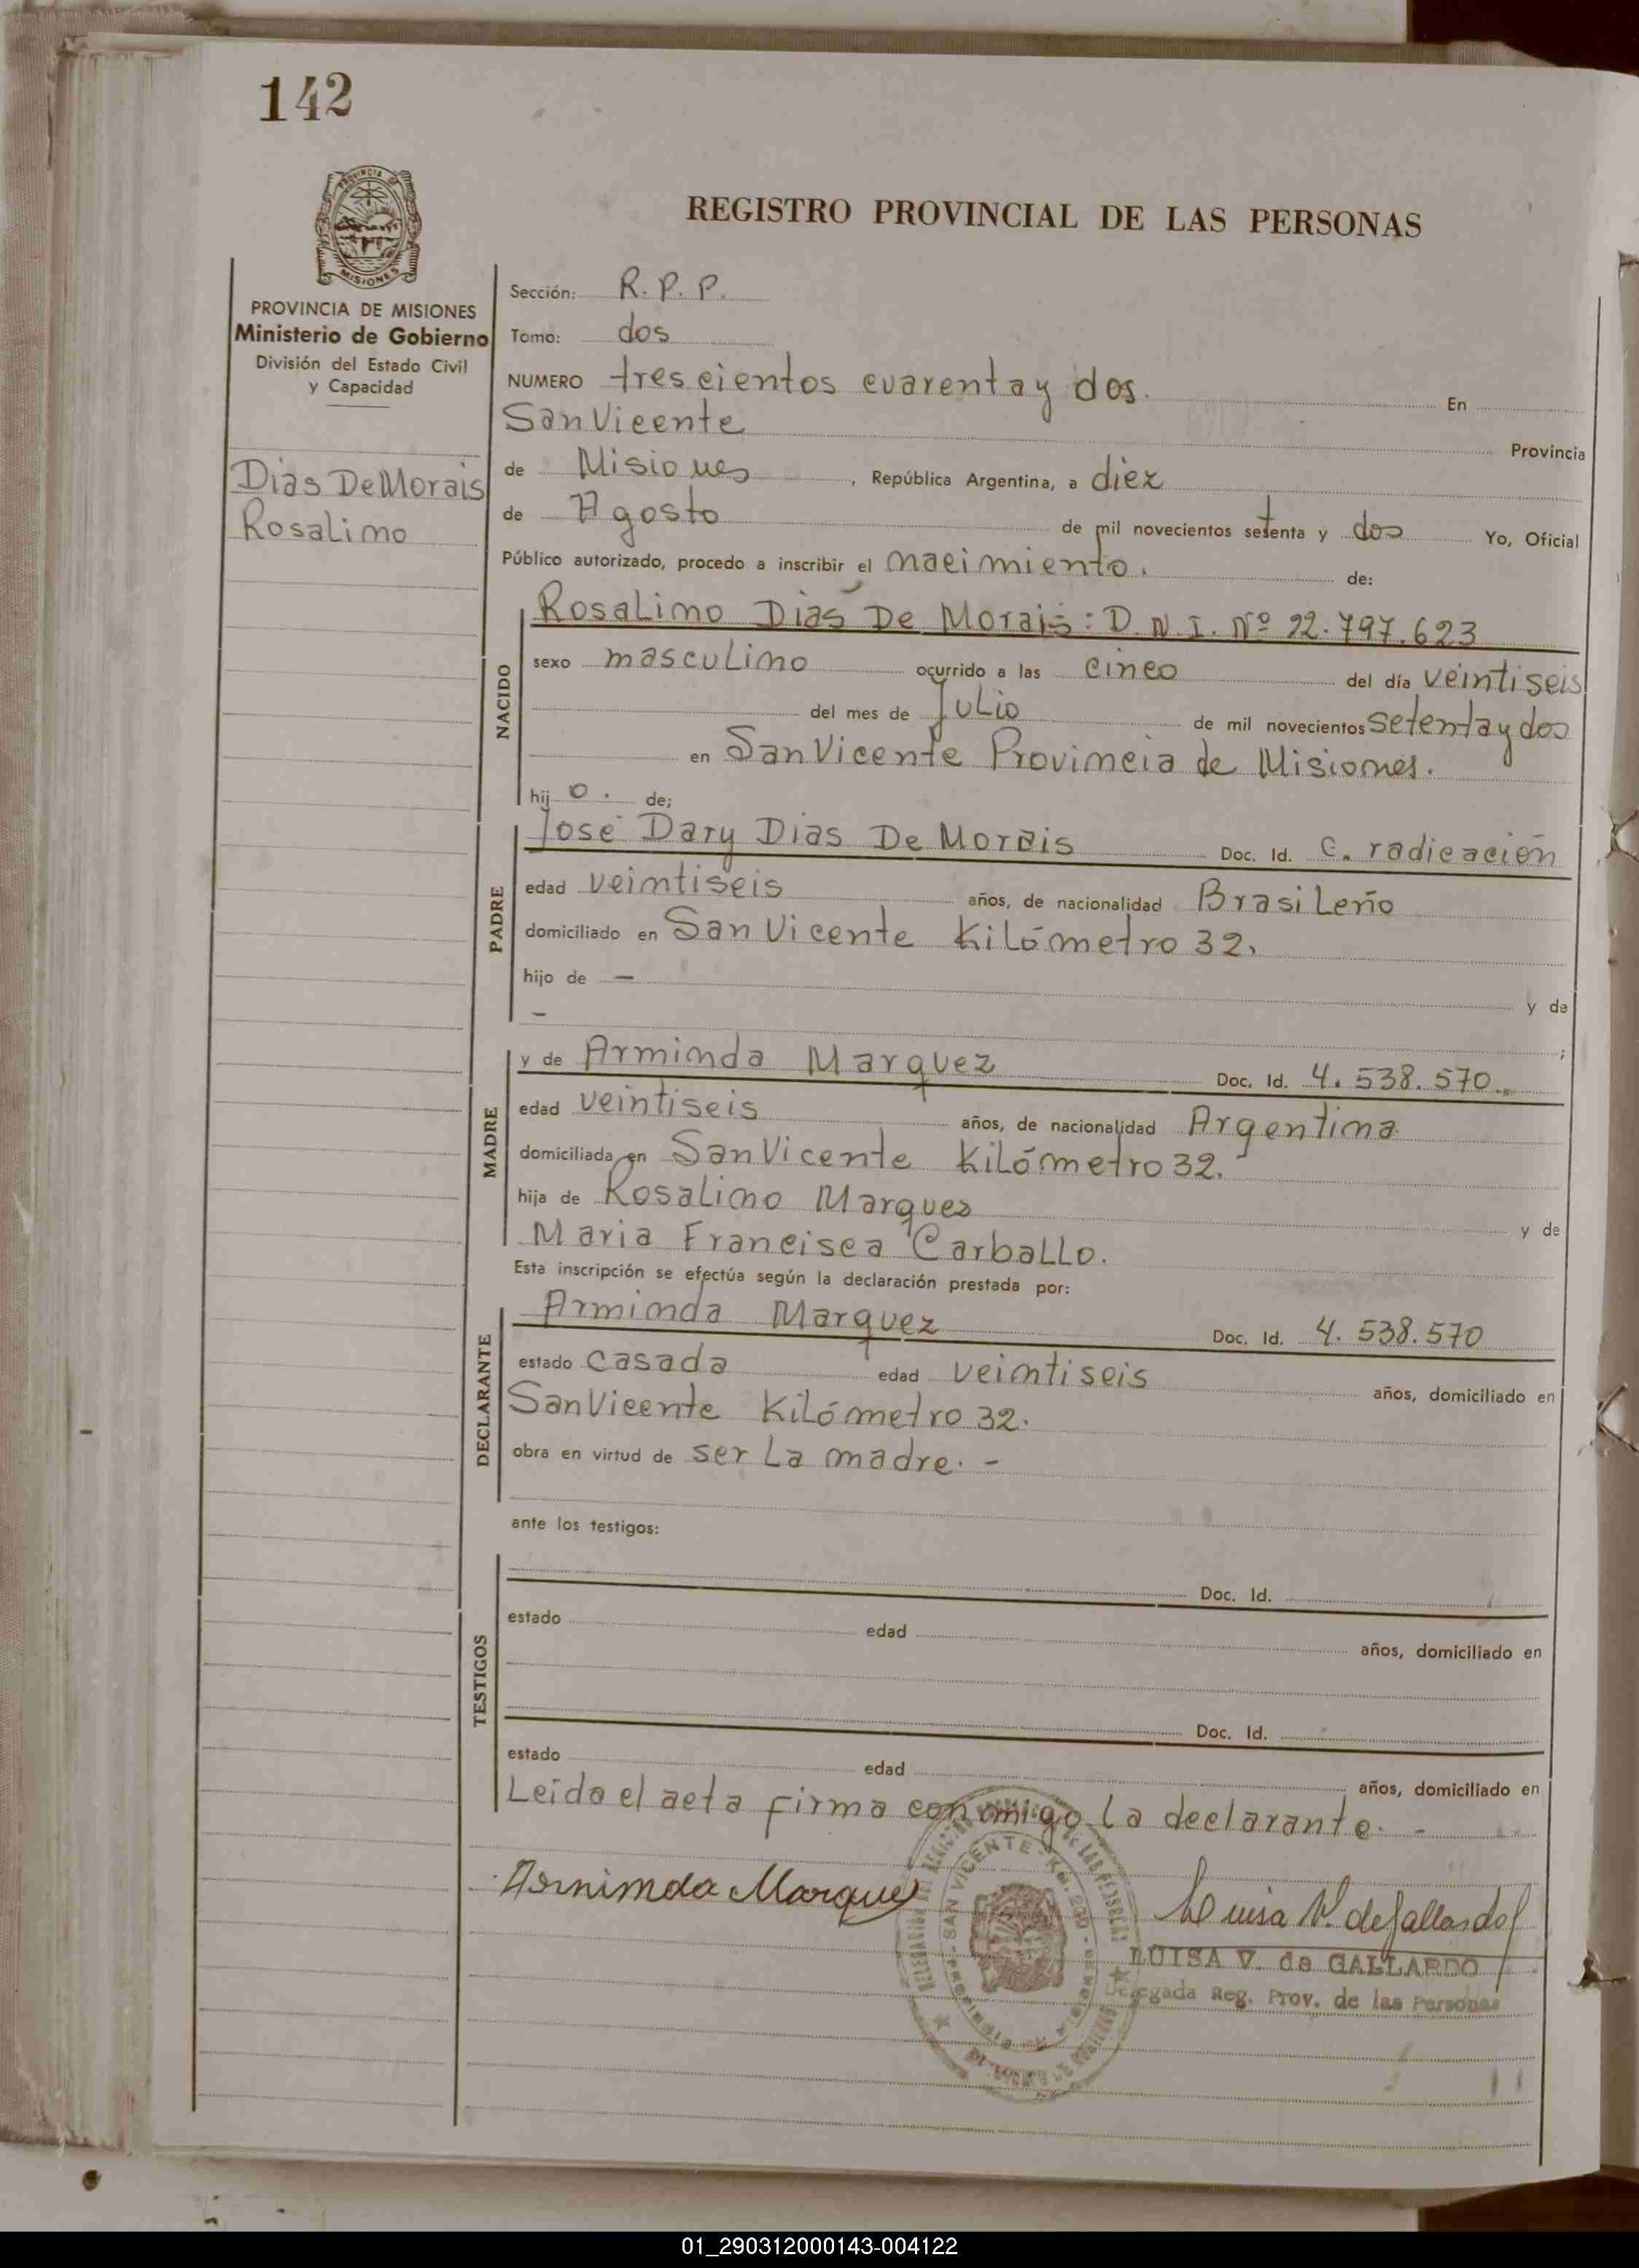 142
PROVINCIA DE
MISIONES
REGISTRO PROVINCIAL DE LAS PERSONAS
PROVINCIA DE MISIONES
Ministerio de Gobierno
División del Estado Civil
y Capacidad
Dias De Morais
Rosalino
Sección: R. P. P.
Tomo: dos
NUMERO trescientos cuarenta y dos. En
San Vicente Provincia
de Misiones, República Argentina, a diez
de Agosto de mil novecientos setenta y dos Yo, Oficial
Público autorizado, procedo a inscribir el nacimiento. de:
NACIDO
Rosalino Dias De Morais: D. N. I. Nº 22.797.623
sexo masculino ocurrido a las cinco del día veintiseis
del mes de Julio de mil novecientos setenta y dos
en San Vicente Provincia de Misiones.
hijo. de;
PADRE
José Dary Dias De Morais Doc. Id. C. radicación
edad veintiseis años, de nacionalidad Brasileño
domiciliado en San Vicente Kilómetro 32.
hijo de — y de
— ;
MADRE
y de Arminda Marquez Doc. Id. 4.538.570.
edad veintiseis años, de nacionalidad Argentina
domiciliada en San Vicente Kilómetro 32.
hija de Rosalino Marquez y de
Maria Francisca Carballo.
Esta inscripción se efectúa según la declaración prestada por:
DECLARANTE
Arminda Marquez Doc. Id. 4.538.570
estado casada edad veintiseis años, domiciliado en
San Vicente Kilómetro 32.
obra en virtud de ser la madre. -
ante los testigos:
TESTIGOS
Doc. Id.
estado edad años, domiciliado en
Doc. Id.
estado edad años, domiciliado en
Leida el acta firma conmigo la declarante. -
Arminda Marquez
Luisa V. de Gallardo
LUISA V. de GALLARDO
Delegada Reg. Prov. de las Personas
SAN VICENTE
01_290312000143-004122